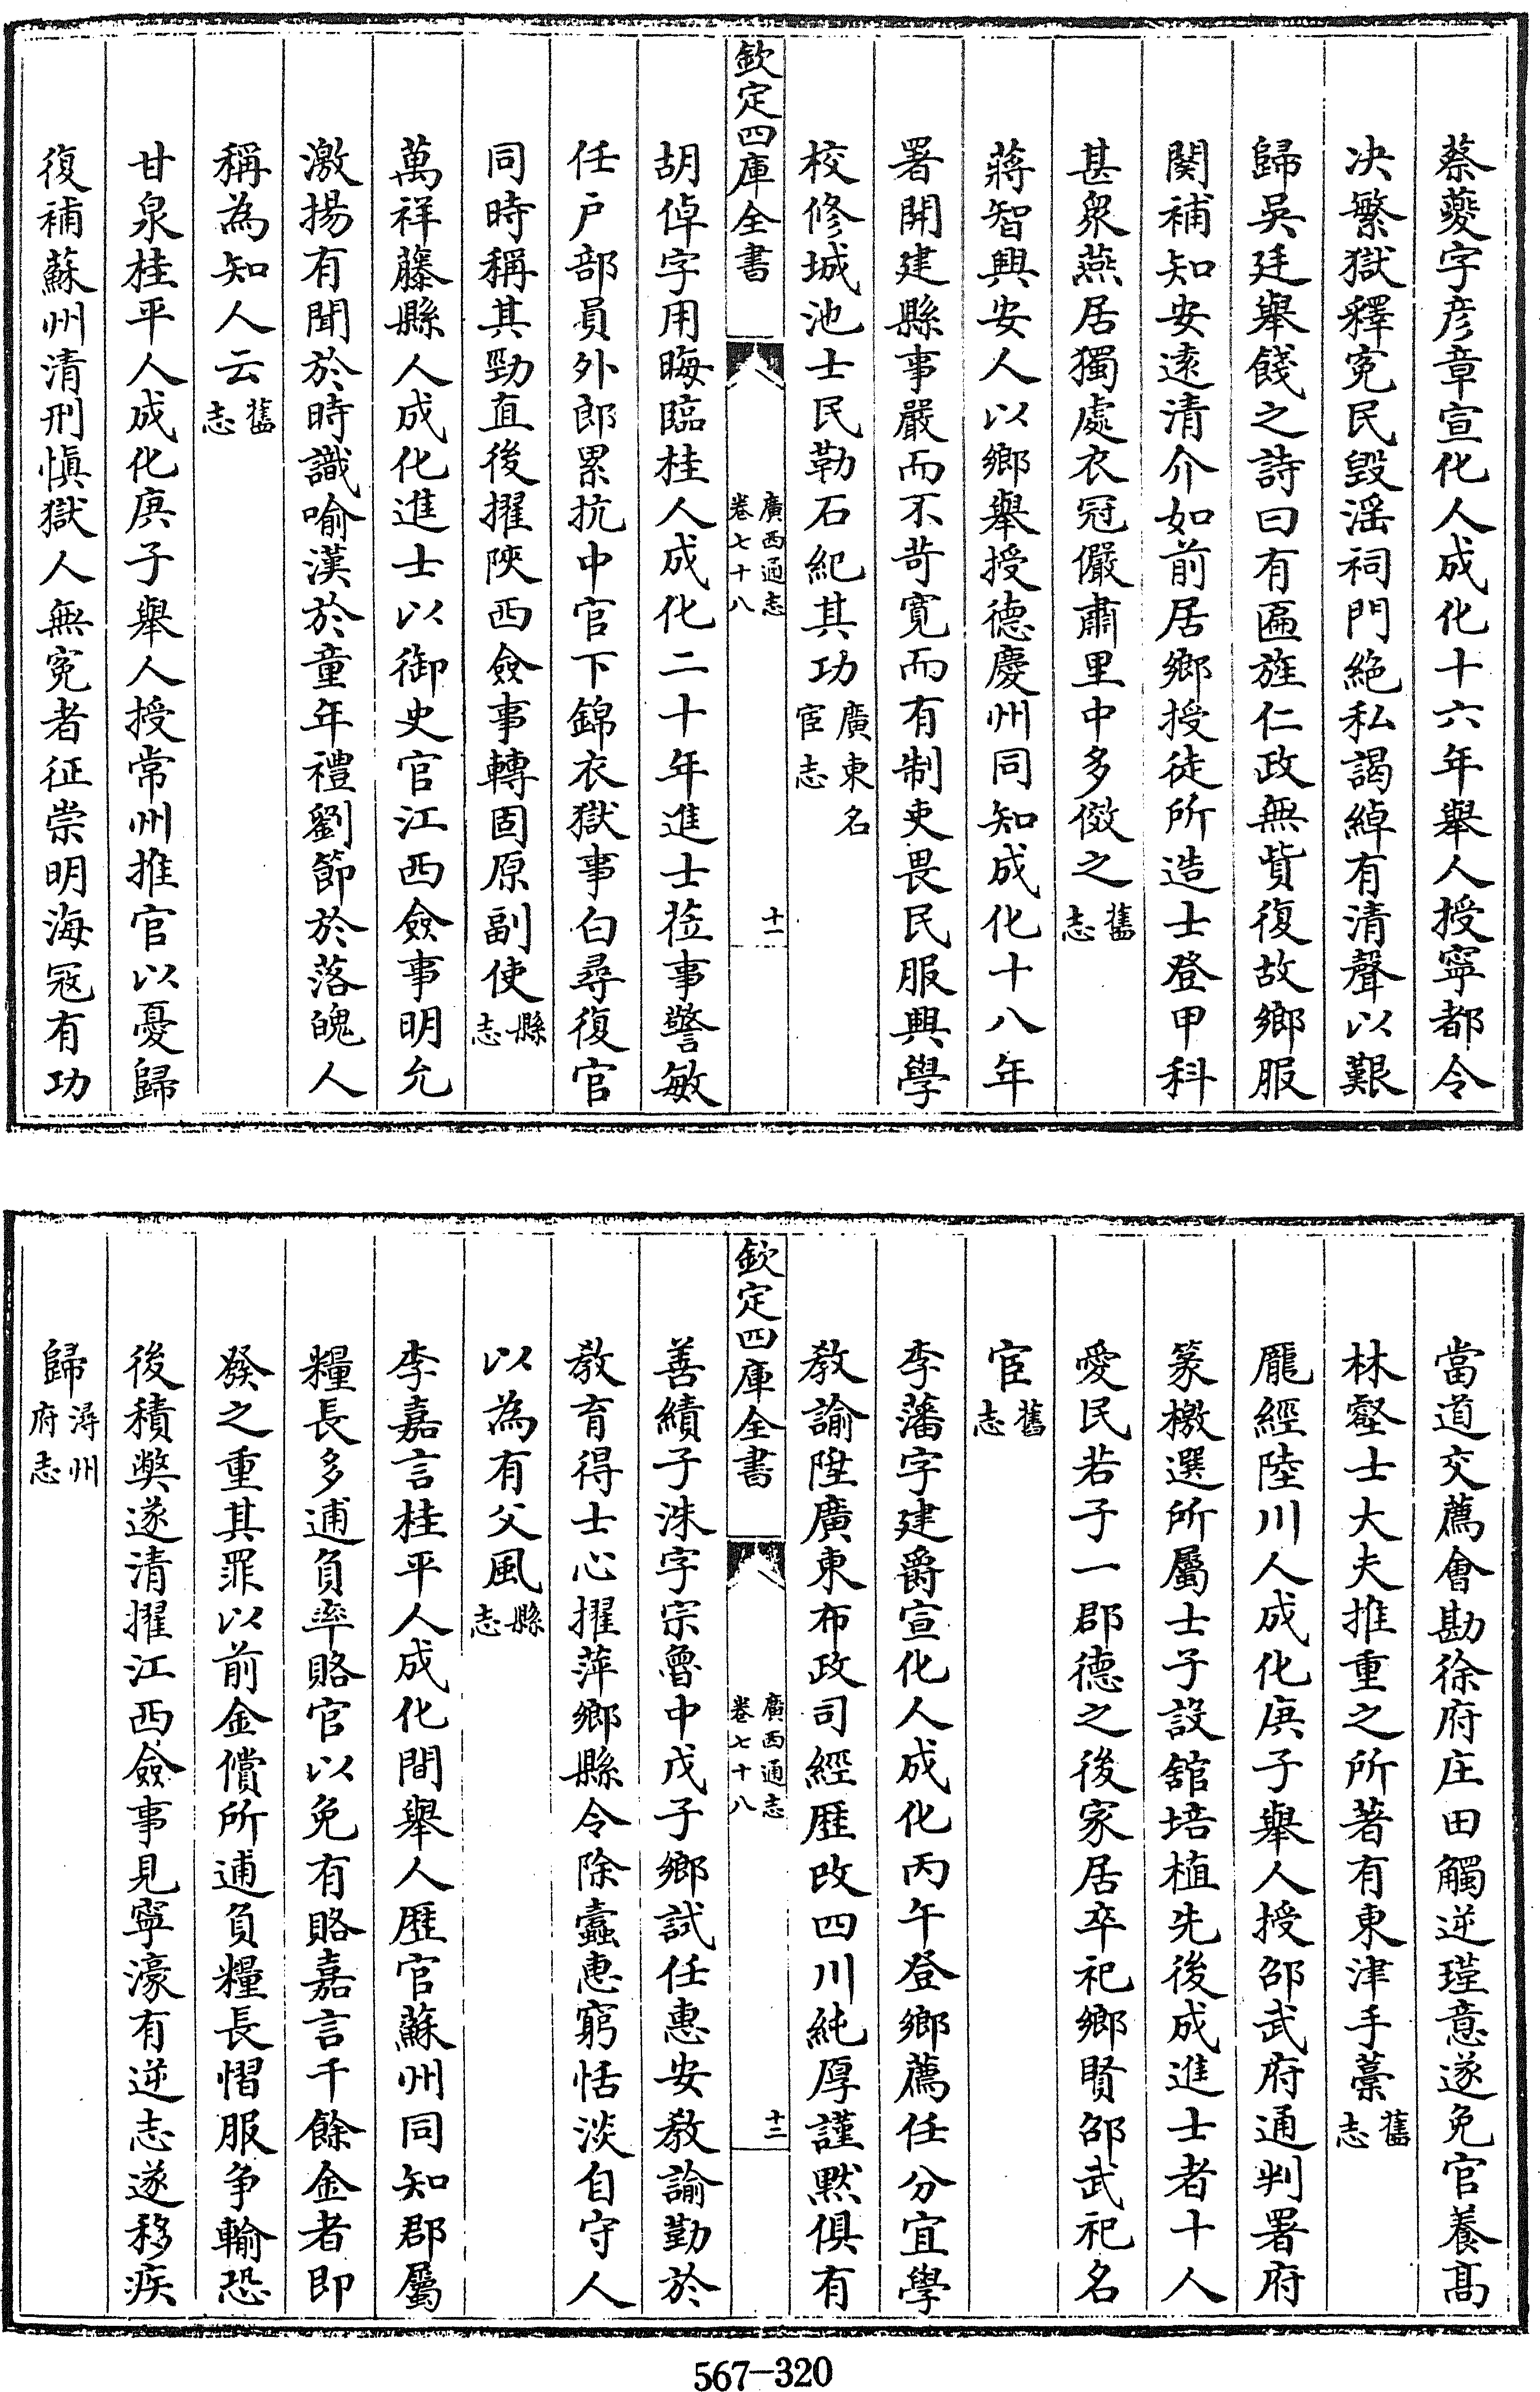 蔡夔字彦章宣化人成化十六年舉人授寧都令
决繁獄釋寃民毁滛祠門絶私謁綽有清聲以艱
歸吳廷舉餞之詩曰有匾旌仁政無貲復故鄉服
闋補知安逺清介如前居鄉授徒所造士登甲科
甚衆燕居獨處衣冠儼肅里中多傚之舊志
蔣智興安人以鄉舉授德慶州同知成化十八年
署開建縣事嚴而不苛寛而有制吏畏民服興學
校修城池士民勒石紀其功廣東名宦志
欽定四庫全書
廣西通志
卷七十八
十一
胡倬字用晦臨桂人成化二十年進士蒞事警敏
任戸部員外郎累抗中官下錦衣獄事白尋復官
同時稱其勁直後擢陝西僉事轉固原副使縣志
萬祥藤縣人成化進士以御史官江西僉事明允
激揚有聞於時識喻漢於童年禮劉節於落魄人
稱為知人云舊志
甘泉桂平人成化庚子舉人授常州推官以憂歸
復補蘇州清刑慎獄人無寃者征崇明海冦有功
當道交薦會勘徐府庄田觸逆瑾意遂免官養髙
林壑士大夫推重之所著有東津手藁舊志
龎經陸川人成化庚子舉人授邵武府通判署府
篆檄選所屬士子設舘培植先後成進士者十人
愛民若子一郡德之後家居卒祀鄉賢邵武祀名
宦舊志
李藩字建爵宣化人成化丙午登鄉薦任分宜學
教諭陞廣東布政司經歴改四川純厚謹黙俱有
欽定四庫全書
廣西通志
卷七十八
十二
善績子洙字宗魯中戊子鄉試任惠安教諭勤於
教育得士心擢萍鄉縣令除蠹惠窮恬淡自守人
以為有父風縣志
李嘉言桂平人成化間舉人歴官蘇州同知郡屬
糧長多逋負率賂官以免有賂嘉言千餘金者即
發之重其罪以前金償所逋負糧長慴服争輸恐
後積獘遂清擢江西僉事見寧濠有逆志遂移疾
歸潯州府志
567-320